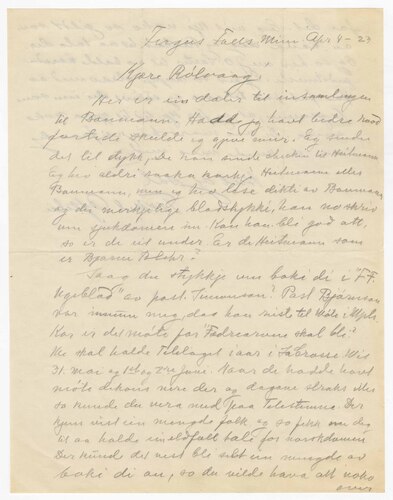 Fergus Falls, Minn Apr 4 - 23
Kjære Rölvaag:
Her er ein dalar til insamlingen
til Baumann. Hadde eg havt bedre raad
fortida skulde eg gjeve meir. Eg sender
det til dykk, De kan sende checken til Heitmann
Eg hev aldri saaka korkje Heitmann eller
Baumann, men eg hev lese dikte av Baumann
og dei merkelige bladstykki, han no skriv
um sjukdomen sin. Kan han bli god att,
so er de eit under. Er de Heitmann som
er Bjarne Blehr?
Saag du stykkje um boki di i "F.F.
Ugeblad" av past. Simonson? Past Bjørnson
var innum meg, daa han reiste til
Kor er det møte for "Fædrearven skal bli"
Me skal halde Telelaget i aar i La Crosse Wis
31. mai og 1st og 2re juni. Naar de hadde havt
møte dikans nære der og dagane straks etter
so kunde du vera med paa Telestemna. Der
kjem visst ein mengde folk og so fekk me deg
til aa halde ein tale for norskdomen
Der kunde det vist bli selt ein mengde av
boki di au, so du vilde hava att noko
over